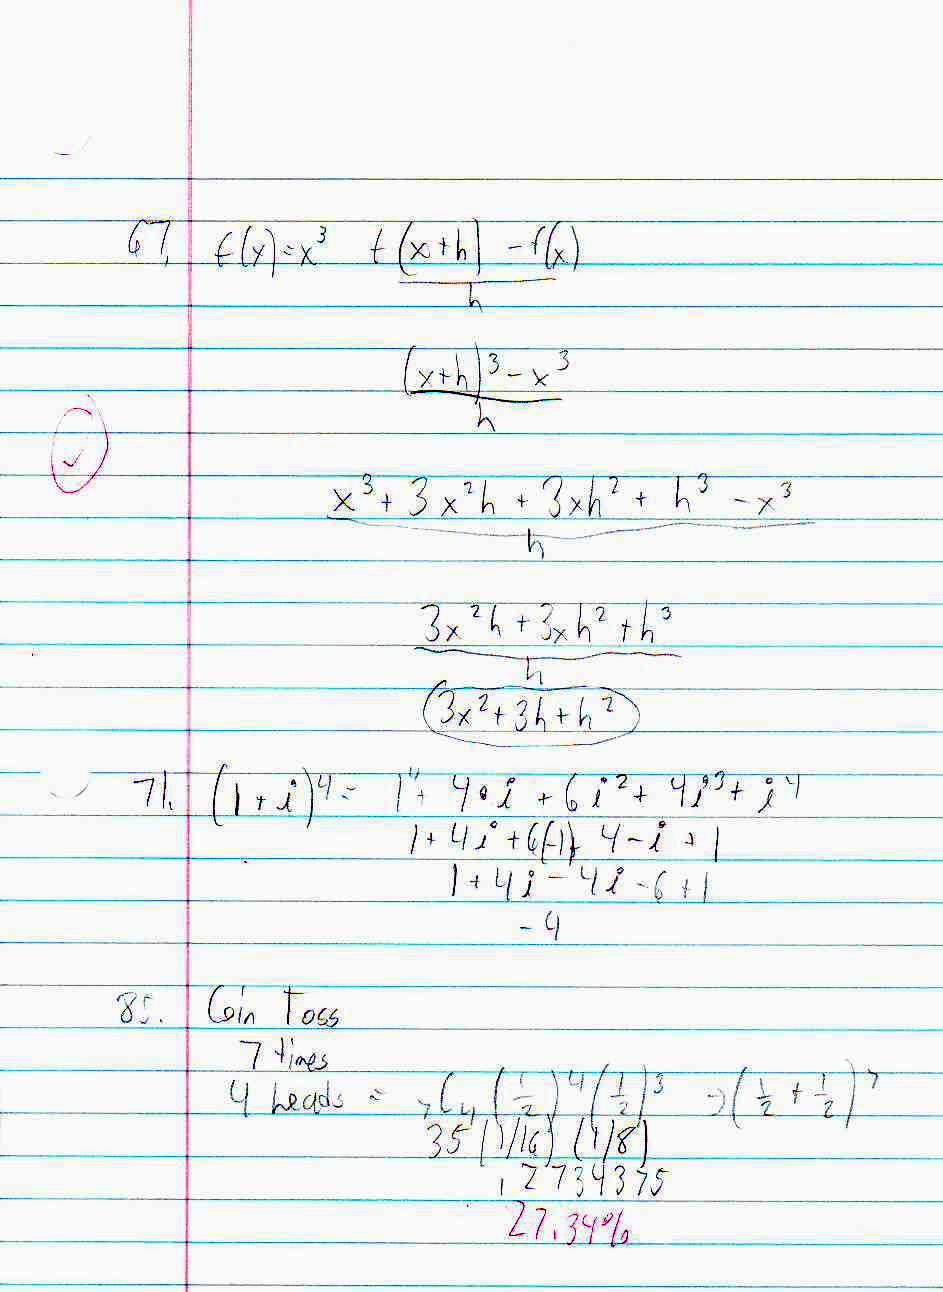 67. f(x)=x³ f(x+h) -f(x)
h
(x+h)³-x³
h
x³+3x²h+3xh²+h³-x³
h
3x²h+3xh²+h³
h
3x²+3h+h²
71. (1+i)⁴= 1⁴+ 4•i +6i²+ 4i³+i⁴
1+4i+6(-1)+ 4-i +1
1+4i-4i-6+1
-4
85. Coin Toss
7 times
4 heads = ₇C₄ (1/2)⁴(1/2)³ → (1/2 + 1/2)⁷
35 (1/16) (1/8)
.2734375
27.34%